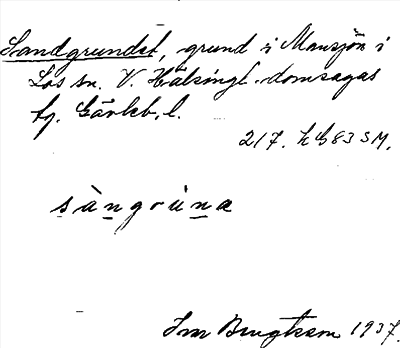 Sandgrundet, grund i Mansjön i
Los sn. V. Hälsingl. domsagas
tg. Gävleb. l.
217. h G83 SM.
sàngrùna
Bengtsson 1937.